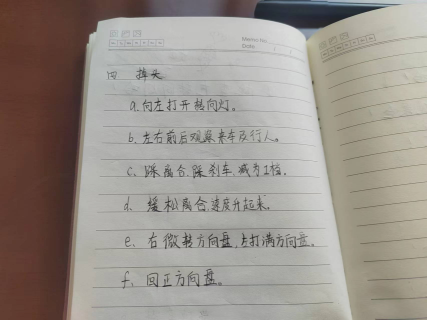 Memo No.
Date
四 掉头
a.向左打开转向灯。
b.左右前后观察来车及行人。
c.踩离合.踩刹车.减为1档.
d.缓松离合.速度升起来.
e.右微转方向盘,左打满方向盘.
f.回正方向盘。